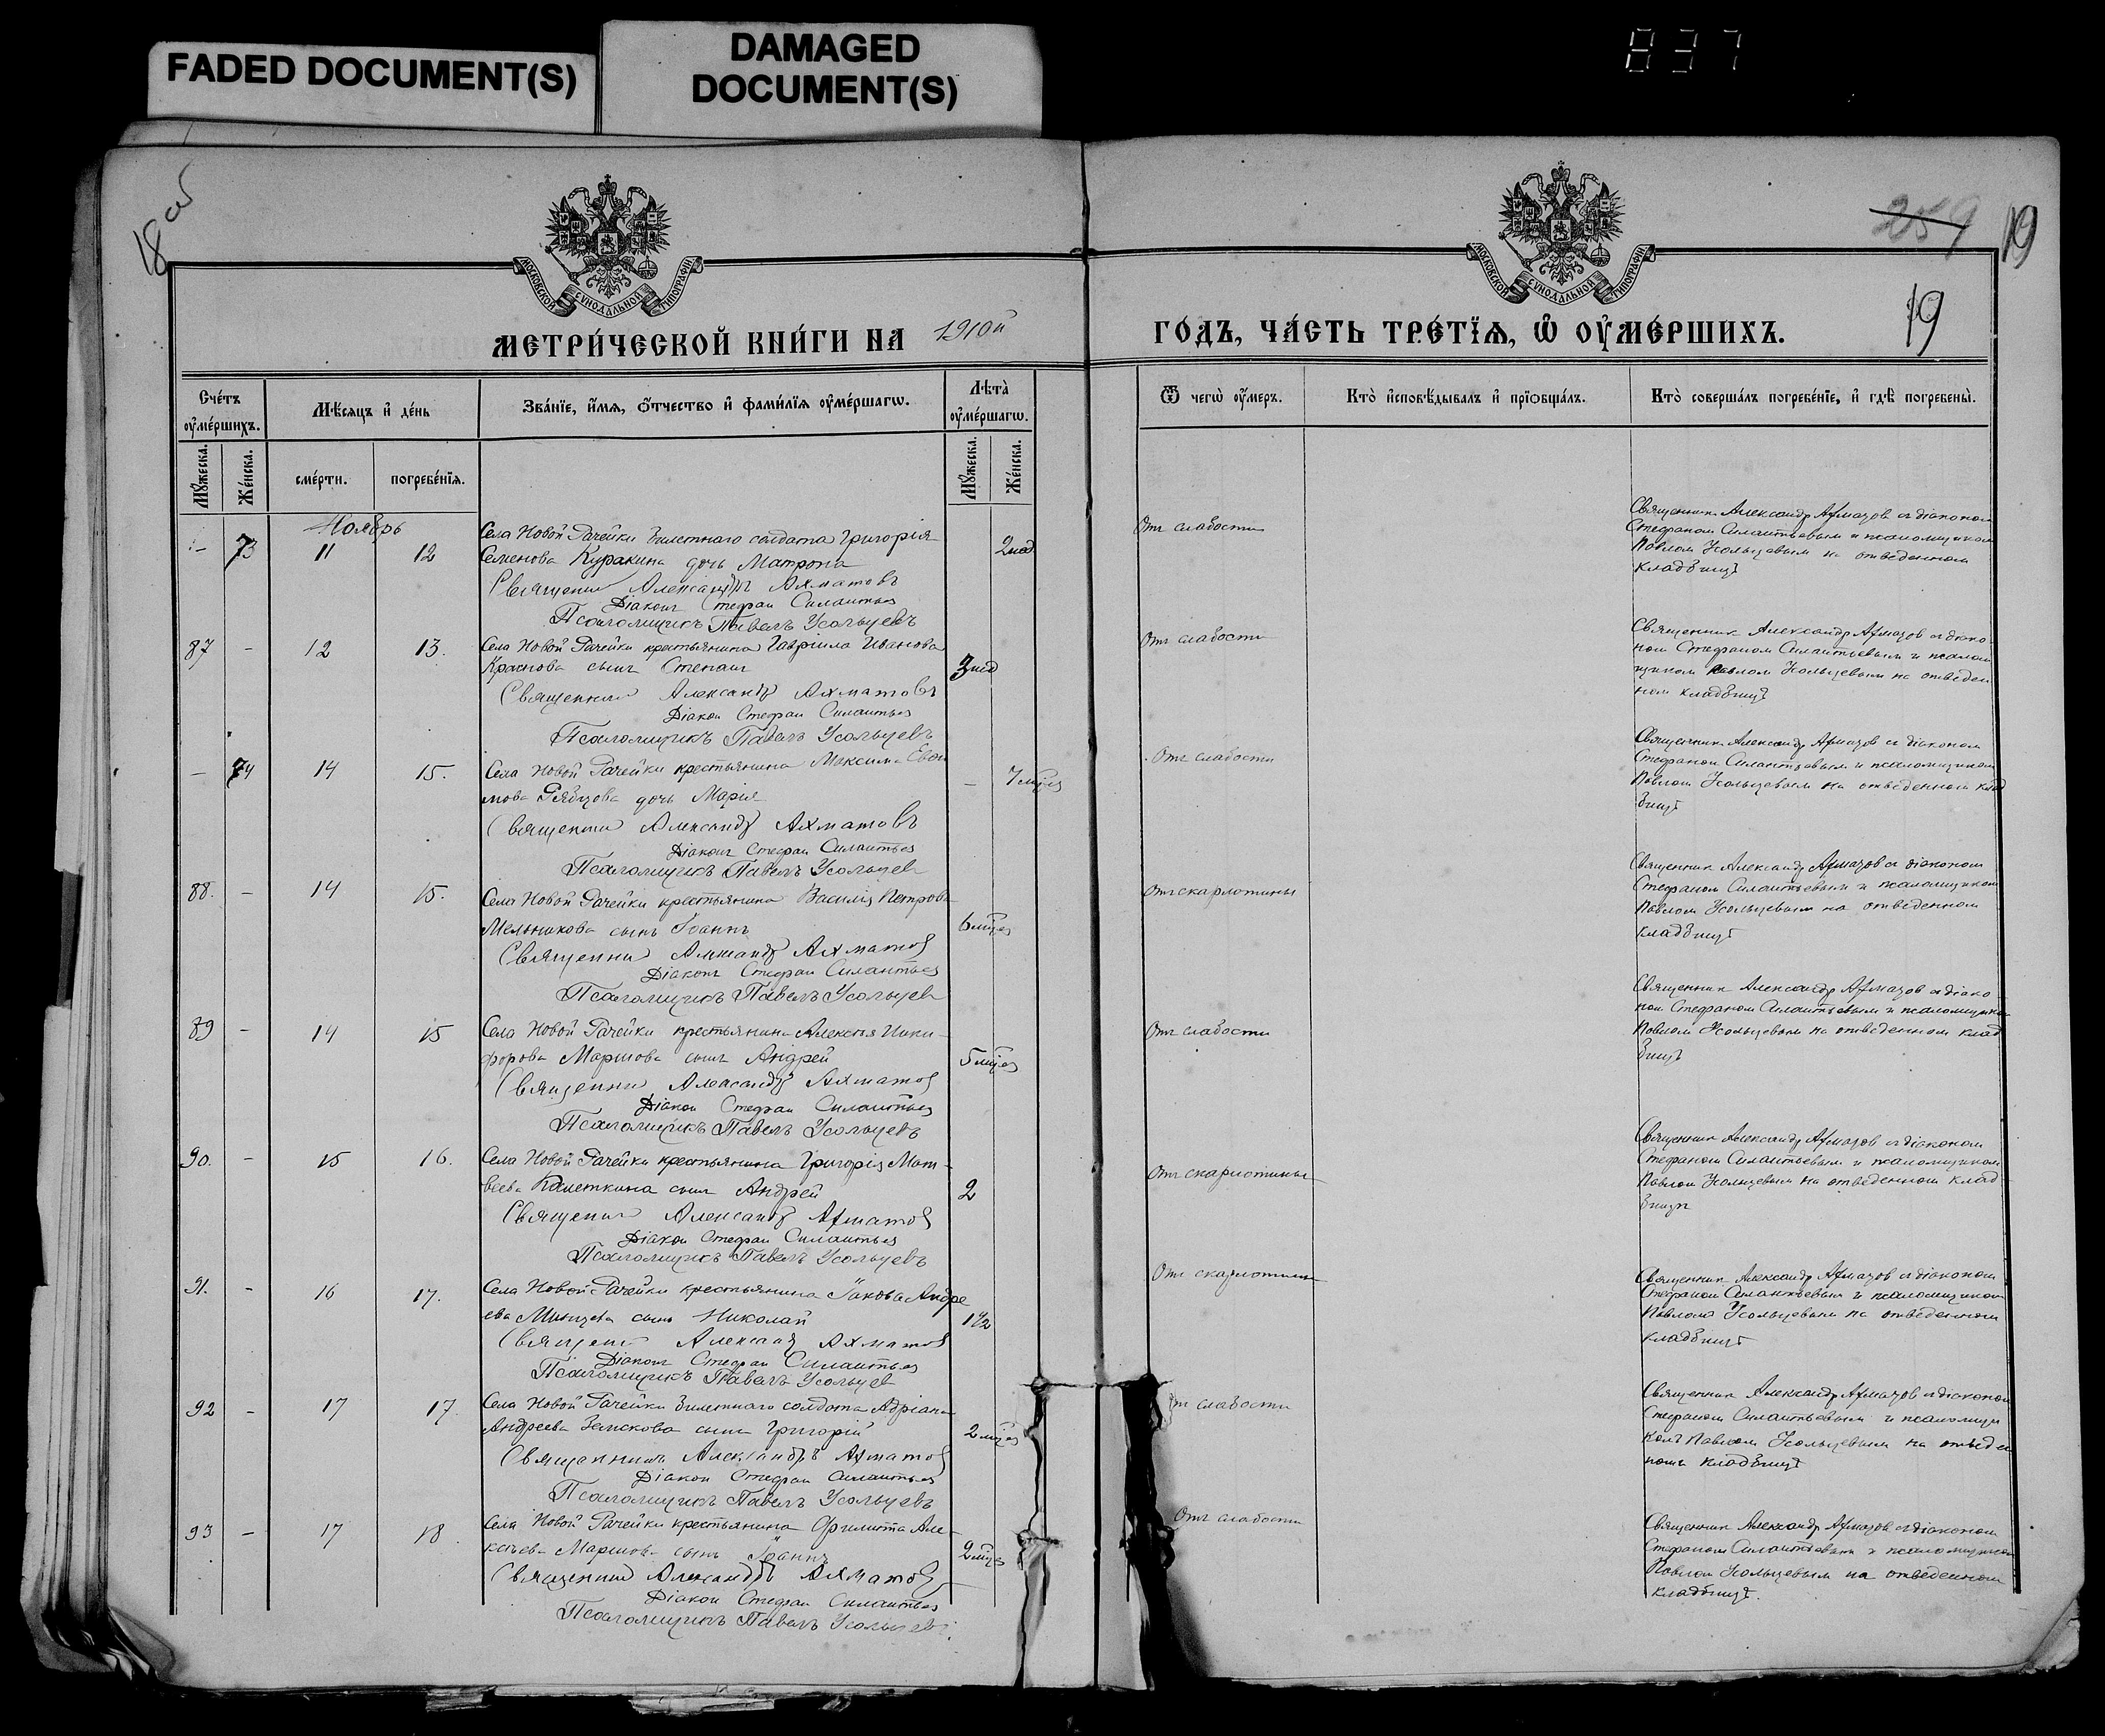 FADED DOCUMENT(S)
DAMAGED
DOCUMENT(S)
837
18 об
259 19
19
МОСКОВСКОЙ СѴНОДАЛЬНОЙ ТИПОГРАФІИ.
МОСКОВСКОЙ СѴНОДАЛЬНОЙ ТИПОГРАФІИ.
МЕТРИ́ЧЕСКОЙ КНИ́ГИ НА 1910й ГО́ДЪ, ЧА́СТЬ ТРЕ́ТЇѦ, Ѽ ОУ҆МЕ́РШИХЪ.
Сче́тъ оу҆ме́ршихъ.
Мѣ́сяцъ и҆ де́нь
Зва́нїе, и҆́мѧ, ѻ҆́тчество и҆ фами́лїѧ оу҆ме́ршагѡ.
Лѣ̀та оу҆ме́ршагѡ.
Ѿ чегѡ̀ оу҆́меръ.
Кто̀ и҆сповѣ́дывалъ и҆ прїѻбща́лъ.
Кто̀ соверша́лъ погребе́нїе, и҆ гдѣ̀ погребены̀.
Мꙋ́жеска.
Же́нска.
сме́рти.
погребе́нїѧ.
Мꙋ́жеска.
Же́нска.
Ноябрь
– 73 11 12
Села Новой Рачейки билетнаго солдата Григорія
Семенова Куракина дочь Матрона
2 нед
Священник Александръ Ахматовъ
Діаконъ Стефан Силантьев
Псаломщикъ Павелъ Усольцевъ
Отъ слабости
Священник Александр Ахматов с діаконом
Стефаном Силантьевым и псаломщиком
Павлом Усольцевым на отведенном
кладбищѣ
87 – 12 13.
Села Новой Рачейки крестьянина Гавріила Иванова
Краснова сынъ Степанъ
3 нед
Священник Александр Ахматовъ
Діакон Стефан Силантьев
Псаломщикъ Павелъ Усольцевъ
Отъ слабости
Священник Александр Ахматов с діако-
ном Стефаном Силантьевым и псалом
щиком Павлом Усольцевым на отведен
ном кладбищѣ
– 74 14 15.
Села Новой Рачейки крестьянина Максима Евфи
мова Рябцова дочь Марія
– 7 мѣся
Священник Александр Ахматовъ
Діаконъ Стефан Силантьев
Псаломщикъ Павелъ Усольцев
Отъ слабости
Священник Александр Ахматов с діаконом
Стефаном Силантьевым и псаломщиком
Павлом Усольцевым на отведенном клад
бищѣ
88. – 14 15.
Села Новой Рачейки крестьянина Василія Петрова
Мельникова сынъ Іоаннъ
6 мѣся
Священник Александр Ахматов
Діаконъ Стефан Силантьев
Псаломщикъ Павелъ Усольцев
Отъ скарлотины
Священник Александр Ахматов с діаконом
Стефаном Силантьевым и псаломщиком
Павлом Усольцевым на отведенном
кладбищѣ
89 – 14 15
Села Новой Рачейки крестьянина Алексѣя Ники-
форова Маршова сынъ Андрей
5 мѣся
Священник Александр Ахматов
Діакон Стефан Силантьев
Псаломщикъ Павелъ Усольцевъ
Отъ слабости
Священник Александр Ахматов с діако
ном Стефаном Силантьевым и псаломщико
Павлом Усольцевым на отведенном клад
бищѣ
90. – 15 16.
Села Новой Рачейки крестьянина Григорія Мат-
веева сынъ Андрей
2
Священник Александр Ахматов
Діакон Стефан Силантьев
Псаломщикъ Павелъ Усольцевъ
Отъ скарлотины
Священник Александр Ахматов с діаконом
Стефаном Силантьевым и псаломщиком
Павлом Усольцевым на отведенном клад-
бищѣ
91. – 16 17.
Села Новой Рачейки крестьянина Іакова Андре
ева сынъ Николай
1 1/2
Священ Александ Ахматов
Діаконъ Стефан Силантьев
Псаломщикъ Павелъ Усольцев
Отъ скарлотины
Священник Александр Ахматов с діаконом
Стефаном Силантьевым и псаломщиком
Павлом Усольцевым на отведенном
кладбищѣ
92 – 17 17.
Села Новой Рачейки билетнаго солдата Адріана
Андреева Земскова сынъ Григорій
2 мѣся
Священник Александръ Ахматов
Діакон Стефан Силантьев
Псаломщикъ Павелъ Усольцевъ
Отъ слабости
Священник Александр Ахматов с діаконом
Стефаном Силантьевым и псаломщи
комъ Павлом Усольцевым на отведен
номъ кладбищѣ
93 – 17 18.
Села Новой Рачейки крестьянина Филиппа Але-
ксѣева Маршова сынъ Іоаннъ
2 мѣся
Священник Александръ Ахматов
Діакон Стефан Силантьев
Псаломщикъ Павелъ Усольцев
Отъ слабости
Священник Александр Ахматов с діаконом
Стефаном Силантьевым и псаломщиком
Павлом Усольцевым на отведенном
кладбищѣ.